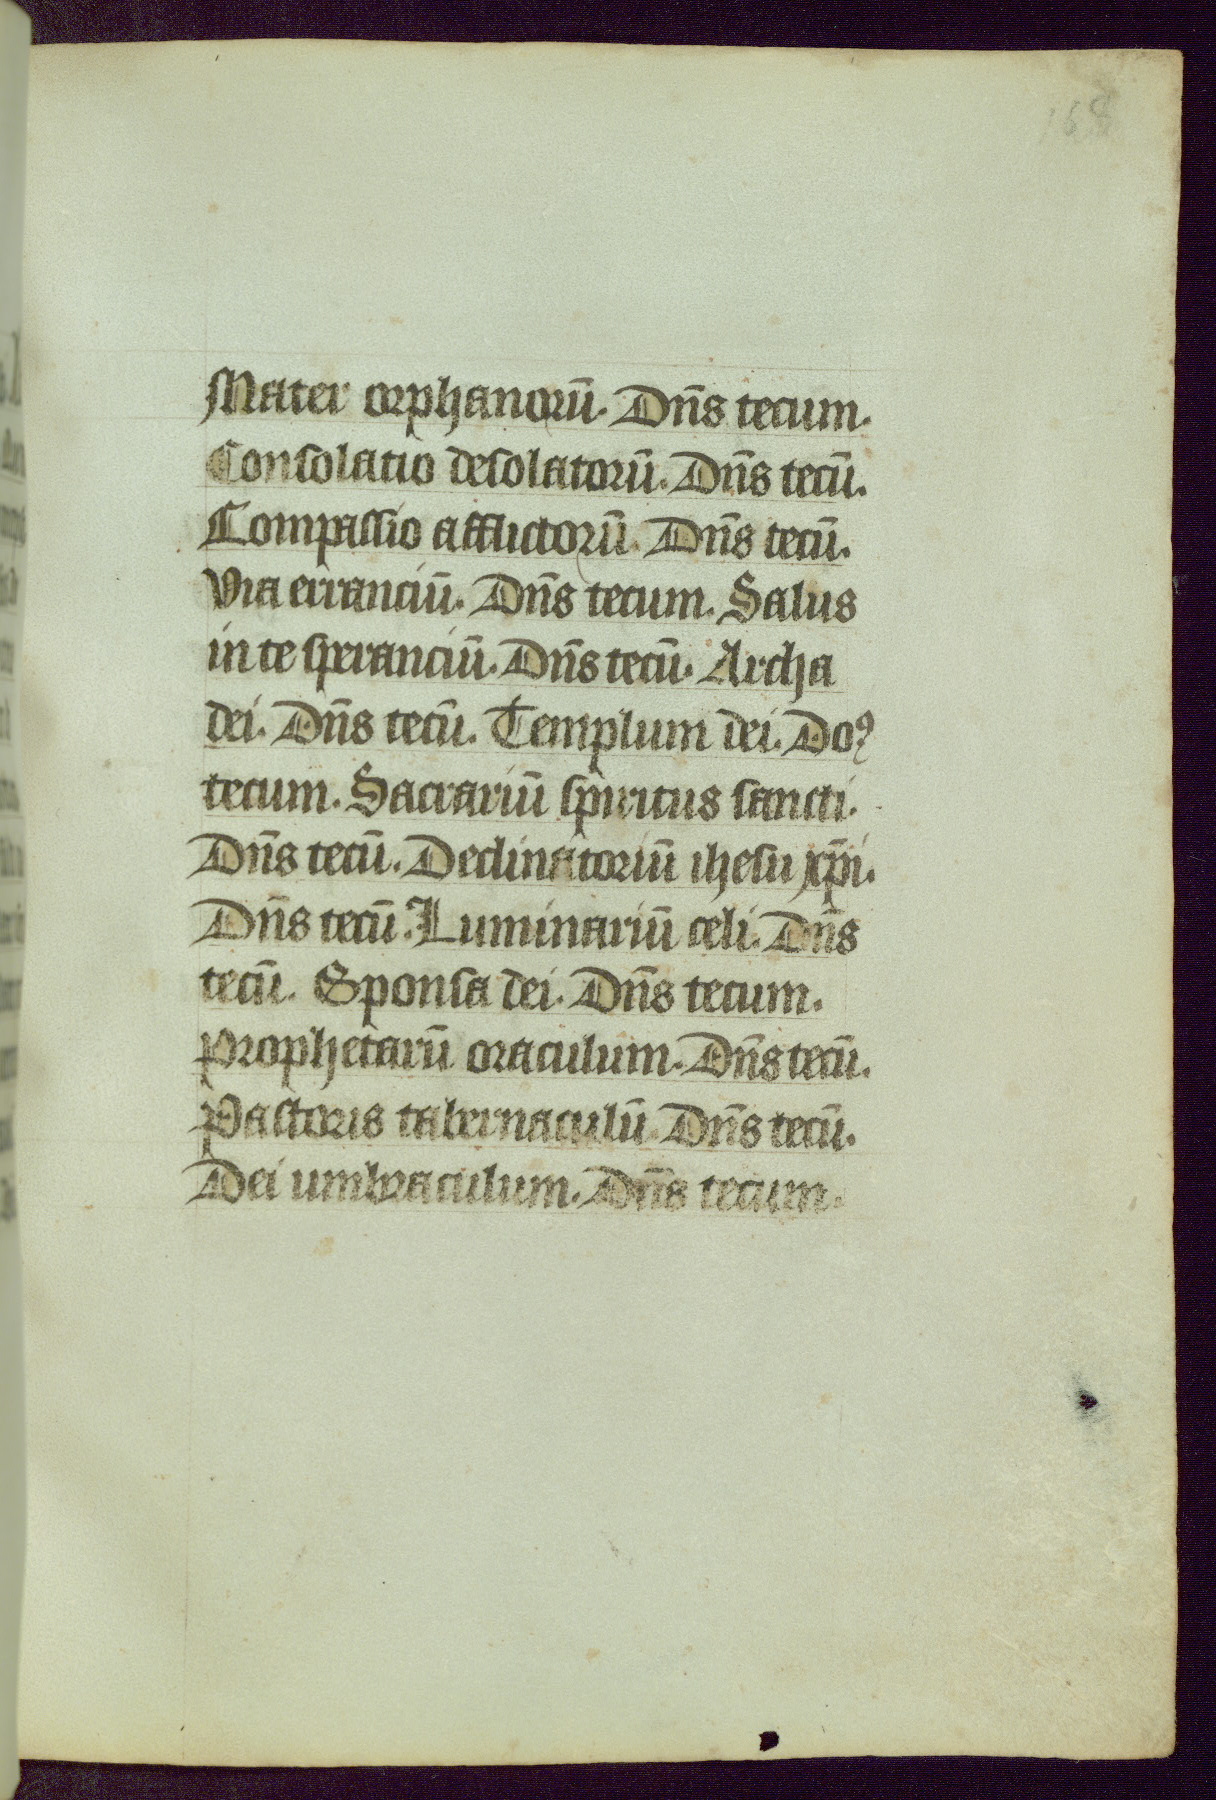 168
Mater orphanorū. Dn̄s tecum.
Consolatio desolatorū. Dn̄s tecū.
Compassio afflictorū. Dn̄s tecū.
Via erranciū. Dn̄s tecum. Salus
in te speranciū. Dn̄s tecū. Archa
dei. Dn̄s tecū. Templum dei. Doꝯ
tecum. Sacrariū spiritus sancti.
Dn̄s tecū. Declinatoriū ihesu xp̄i.
Dn̄s tecū. Luminariū celi. Dn̄s
tecū. Sponsa dei. Dn̄s tecum.
Prophetarū oraculum. Dn̄s tecū.
Pastoris tabernaculū. Dn̄s tecū.
Dei umbraculum. Dn̄s tecum.